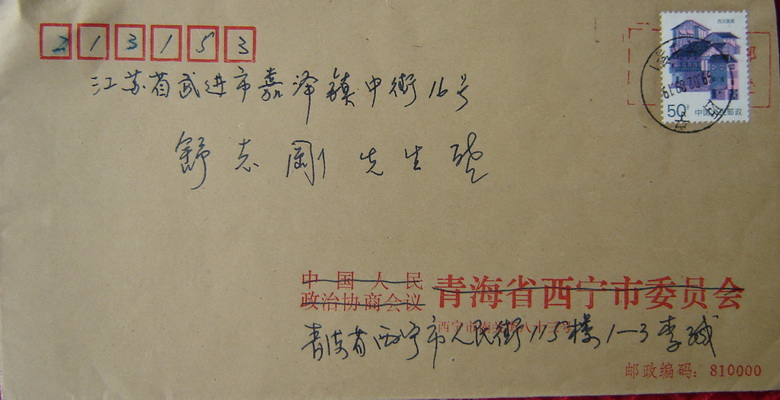 213153
江苏省武进市嘉泽镇中街16号
舒志刚先生
50分
中国人民邮政
中国人民
政治协商会议
青海省西宁市委员会
青海省西宁市人民街115楼1-3李
邮政编码：810000